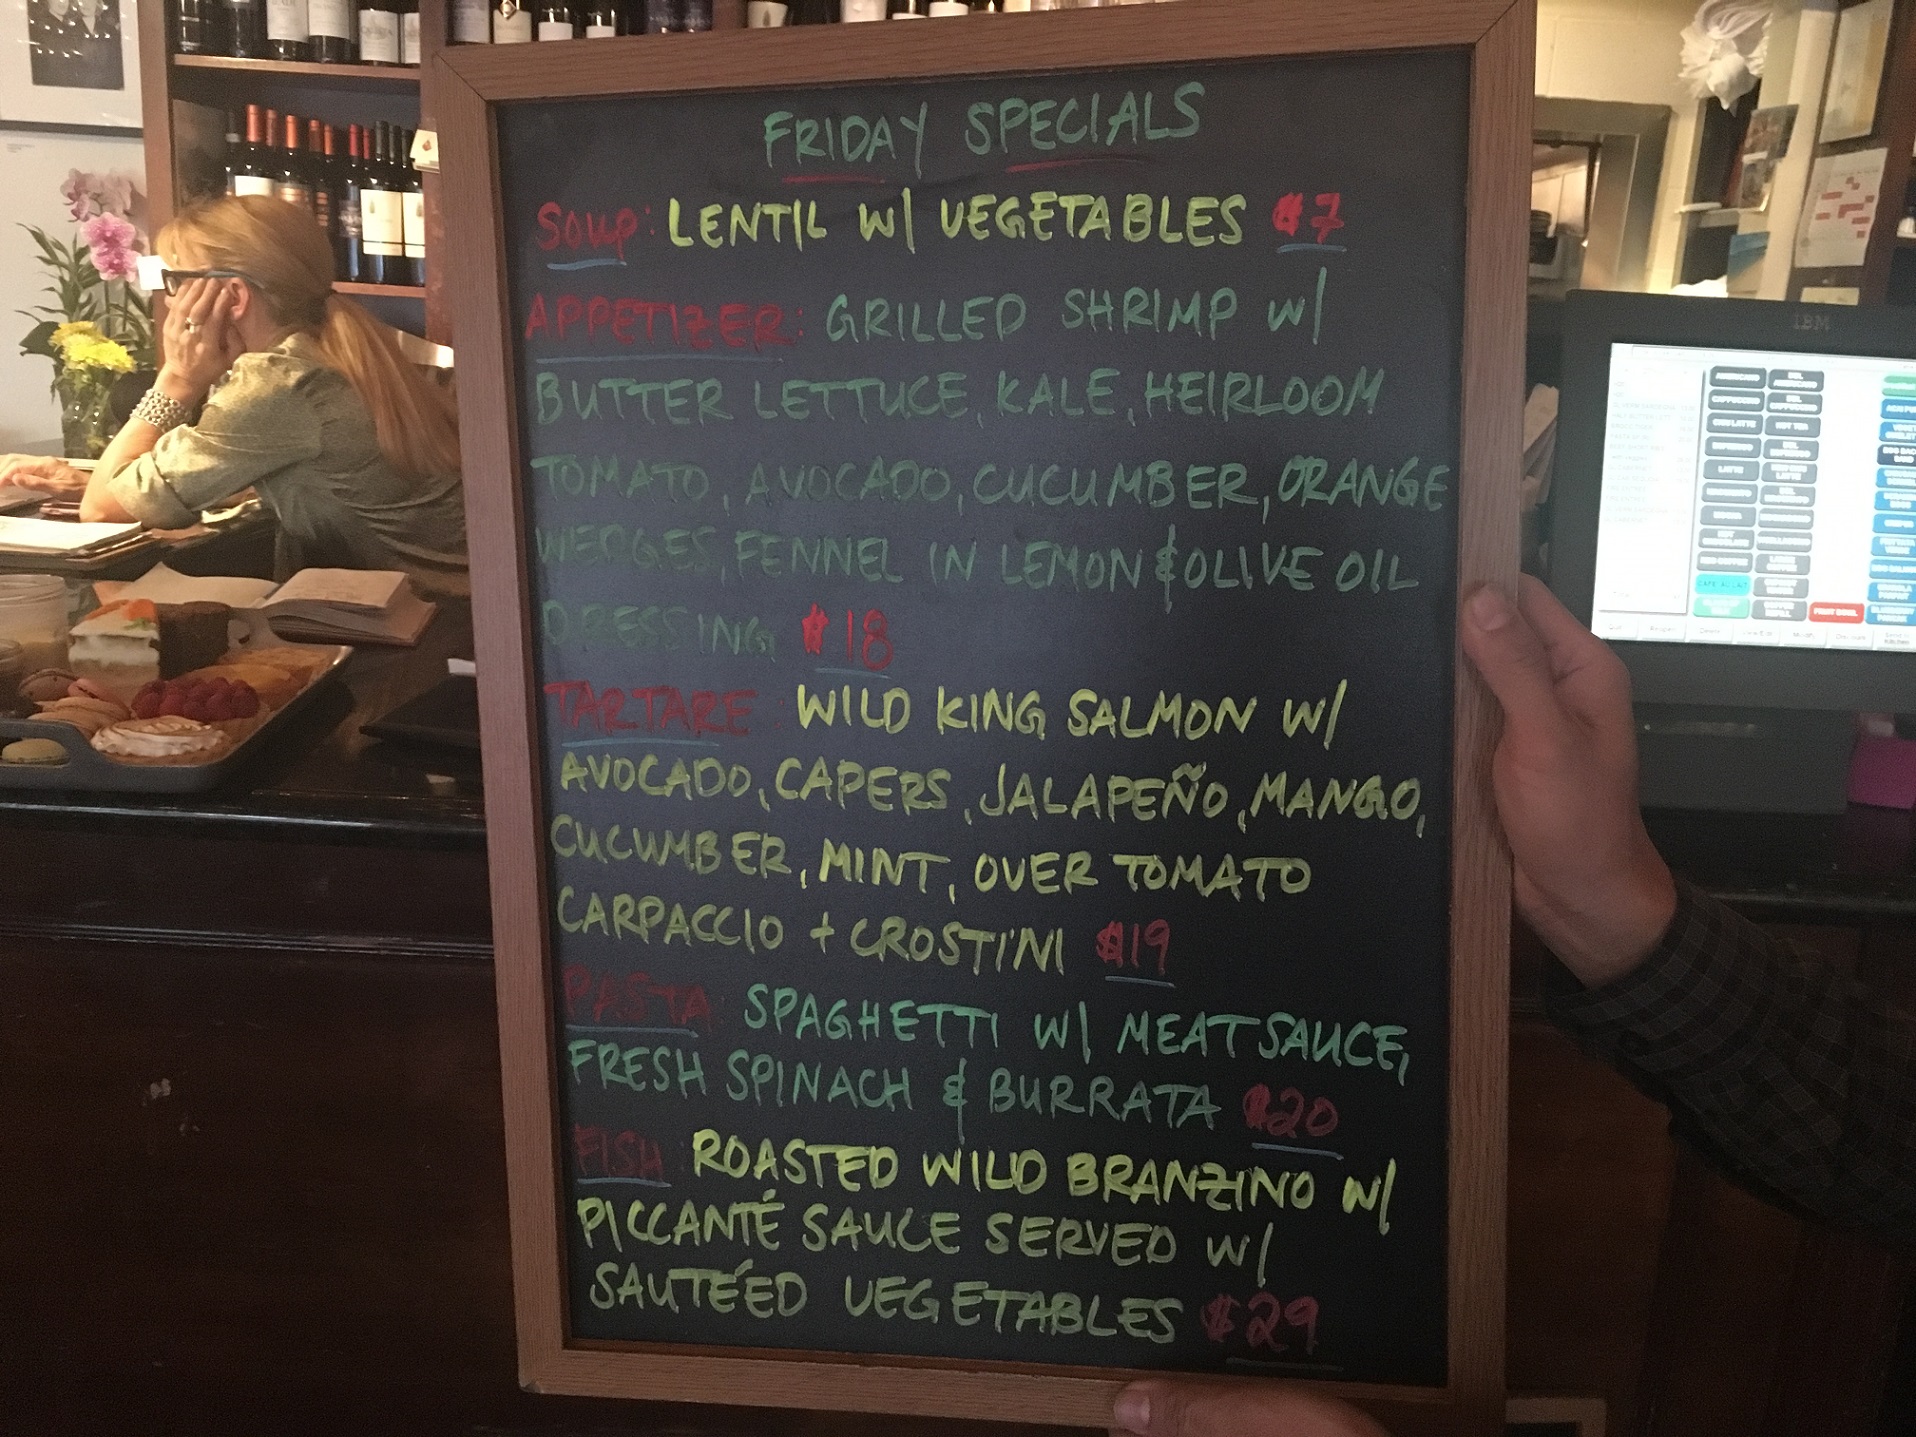 FRIDAY SPECIALS
SOUP: LENTIL W/ VEGETABLES $7
APPETIZER: GRILLED SHRIMP W/
BUTTER LETTUCE, KALE, HEIRLOOM
TOMATO, AVOCADO, CUCUMBER, ORANGE
WEDGES, FENNEL IN LEMON & OLIVE OIL
DRESSING $18
TARTARE: WILD KING SALMON W/
AVOCADO, CAPERS, JALAPEÑO, MANGO,
CUCUMBER, MINT, OVER TOMATO
CARPACCIO + CROSTINI $19
PASTA: SPAGHETTI W/ MEATSAUCE,
FRESH SPINACH & BURRATA $20
FISH: ROASTED WILD BRANZINO W/
PICCANTÉ SAUCE SERVED W/
SAUTÉED VEGETABLES $29
IBM